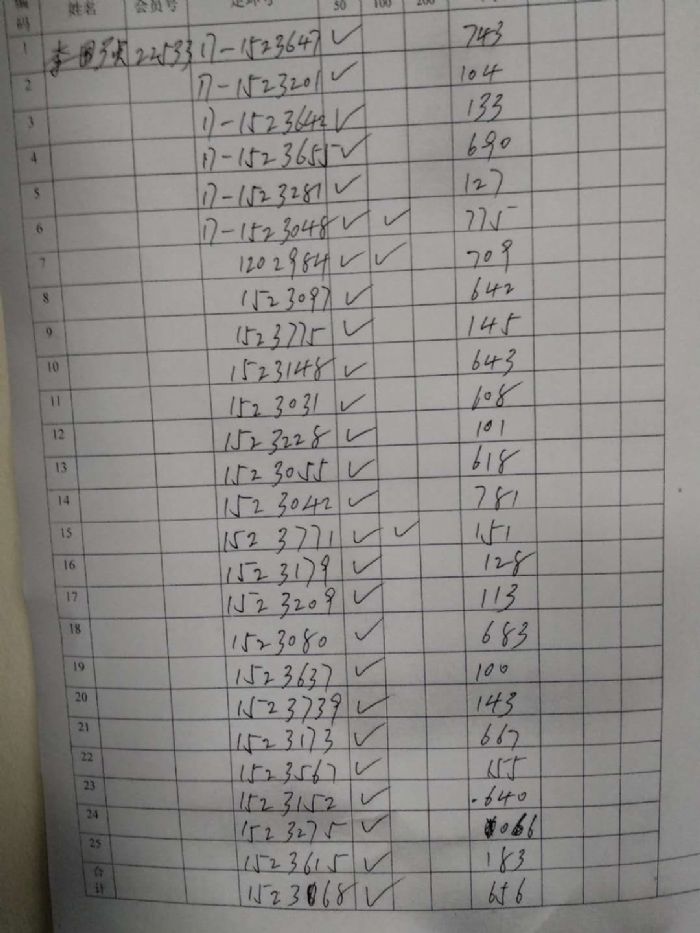 编码 姓名 会员号 足环号 50 100 200
1 李国 22533 17-1523647 ✓ 743
2 17-1523201 ✓ 104
3 17-1523642 ✓ 133
4 17-1523655 ✓ 690
5 17-1523281 ✓ 127
6 17-1523048 ✓ ✓ 775
7 1202984 ✓ ✓ 709
8 1523097 ✓ 642
9 1523775 ✓ 145
10 1523148 ✓ 643
11 1523031 ✓ 608
12 1523228 ✓ 101
13 1523055 ✓ 618
14 1523042 ✓ 781
15 1523771 ✓ ✓ 151
16 1523179 ✓ 128
17 1523209 ✓ 113
18 1523080 ✓ 683
19 1523637 ✓ 100
20 1523739 ✓ 143
21 1523173 ✓ 667
22 1523567 ✓ 155
23 1523152 ✓ 640
24 1523275 ✓ 066
25 1523615 ✓ 183
合计 1523168 ✓ 656